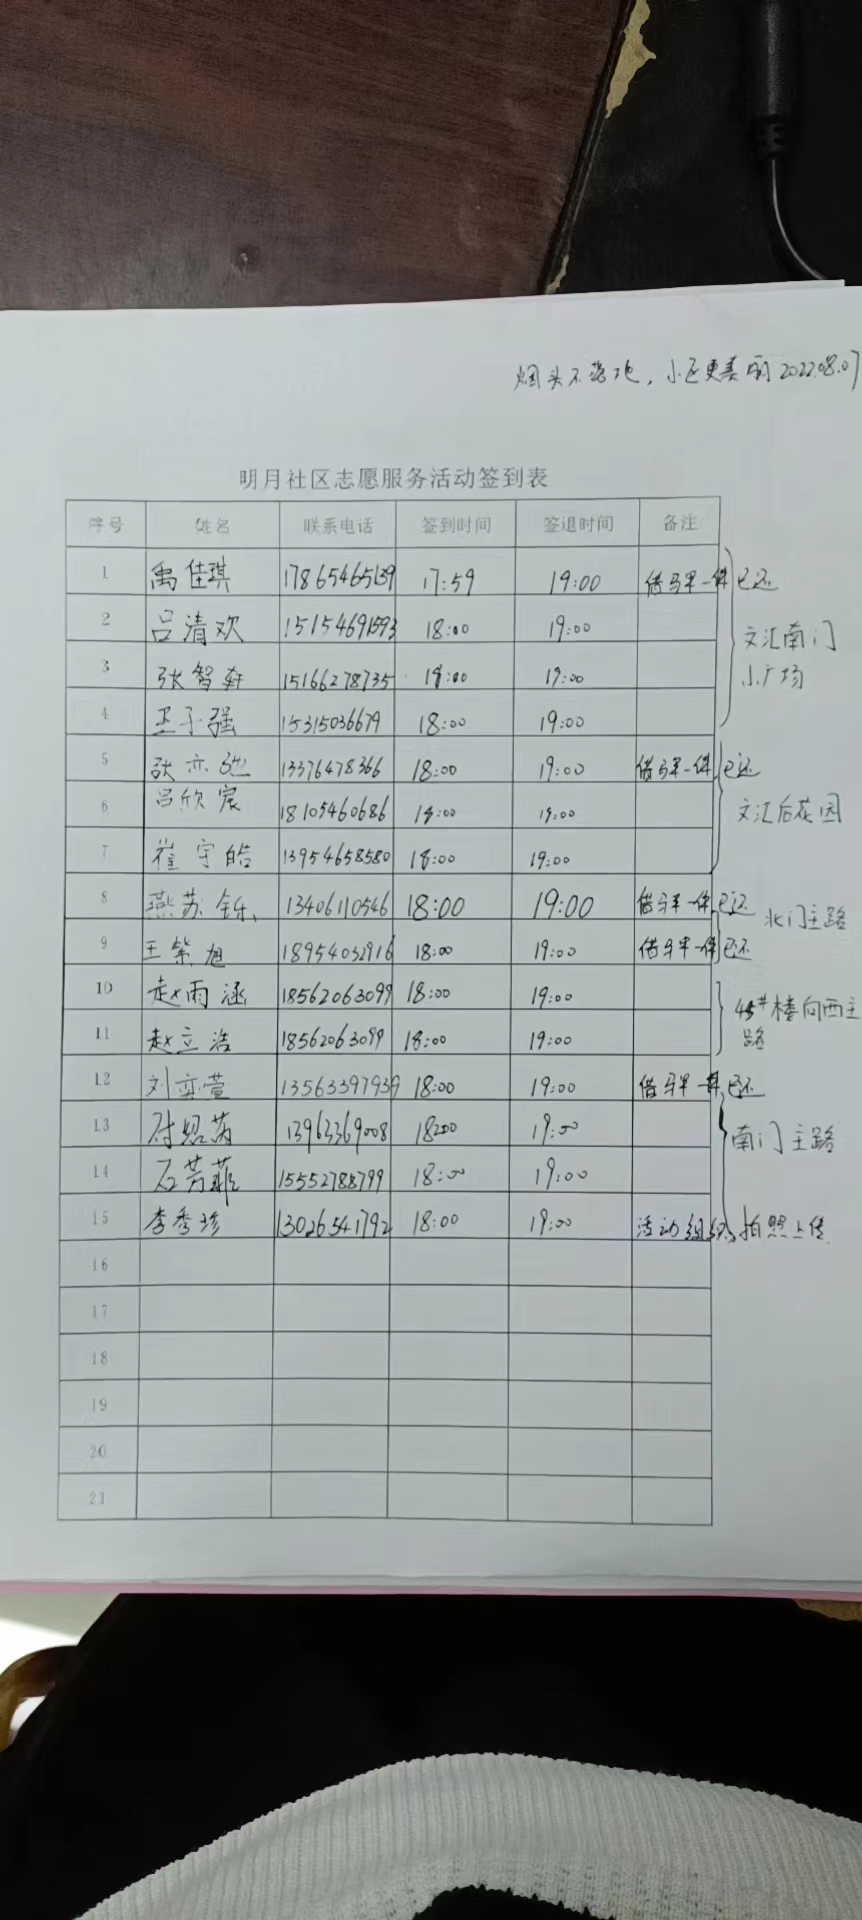 烟头不落地，小区更美丽 2022.08.07
明月社区志愿服务活动签到表
序号 姓名 联系电话 签到时间 签退时间 备注
1 禹佳琪 17865465139 17:59 19:00 借马甲一件 已还
2 吕清欢 15154691593 18:00 19:00
文汇南门
小广场
3 张智轩 15166278735 18:00 19:00
4 王子强 15315036679 18:00 19:00
5 张亦弛 13376478366 18:00 19:00 借马甲一件 已还
6 吕欣宸 18105460686 18:00 19:00
文汇后花园
7 崔宇皓 13954658580 18:00 19:00
8 燕苏铄 13406110546 18:00 19:00 借马甲一件 已还
北门主路
9 王紫旭 18954032916 18:00 19:00 借马甲一件 已还
10 赵雨涵 18562063099 18:00 19:00
45#楼向西主
路
11 赵立浩 18562063099 18:00 19:00
12 刘奕萱 13563397939 18:00 19:00 借马甲一件 已还
13 13963369008 18:00 19:00
南门主路
14 石芳菲 15552788799 18:00 19:00
15 李秀珍 13026541792 18:00 19:00 活动组织、拍照上传
16
17
18
19
20
21